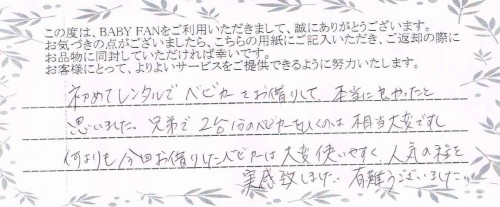 この度は、BABY FANをご利用いただきまして、誠にありがとうございます。
お気づきの点がございましたら、こちらの用紙にご記入いただき、ご返却の際に
お品物に同封していただければ幸いです。
お客様にとって、よりよいサービスをご提供できるように努力いたします。
初めてレンタルでベビカーをお借りして 本当に良かったと
思いました。兄弟で2台分のベビカーをひくのは相当大変ですし
何よりも今回お借りしたベビカーは大変使いやすく、人気の程を
実感致しました。有難うございました。